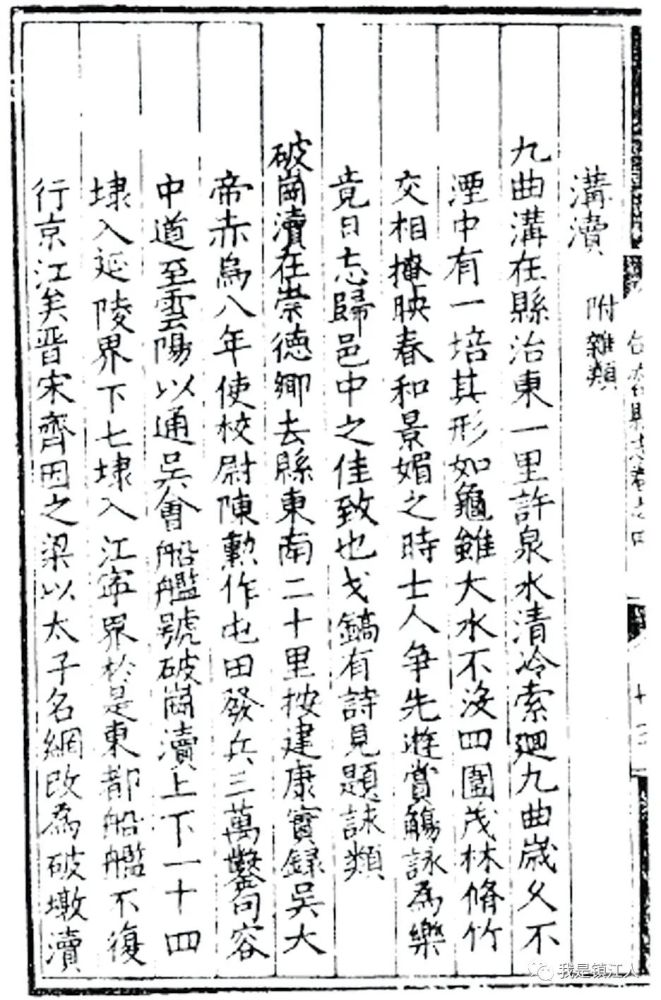 溝瀆　附雜類
九曲溝在縣治東一里許泉水清冷索廻九曲歲久不
湮中有一培其形如龜雖大水不沒四圍茂林脩竹
交相掩映春和景媚之時士人爭先遊賞觴詠為樂
竟日忘歸邑中之佳致也戈鎬有詩見題詠類
破崗瀆在崇德鄉去縣東南二十里按建康實録吳大
帝赤烏八年使校尉陳勳作屯田發兵三萬鑿句容
中道至雲陽以通吳會船艦號破崗瀆上下一十四
埭入延陵界下七埭入江寜界於是東都船艦不復
行京江矣晋宋齊因之梁以太子名綱改為破墩瀆
句容縣志卷之四
我是镇江人